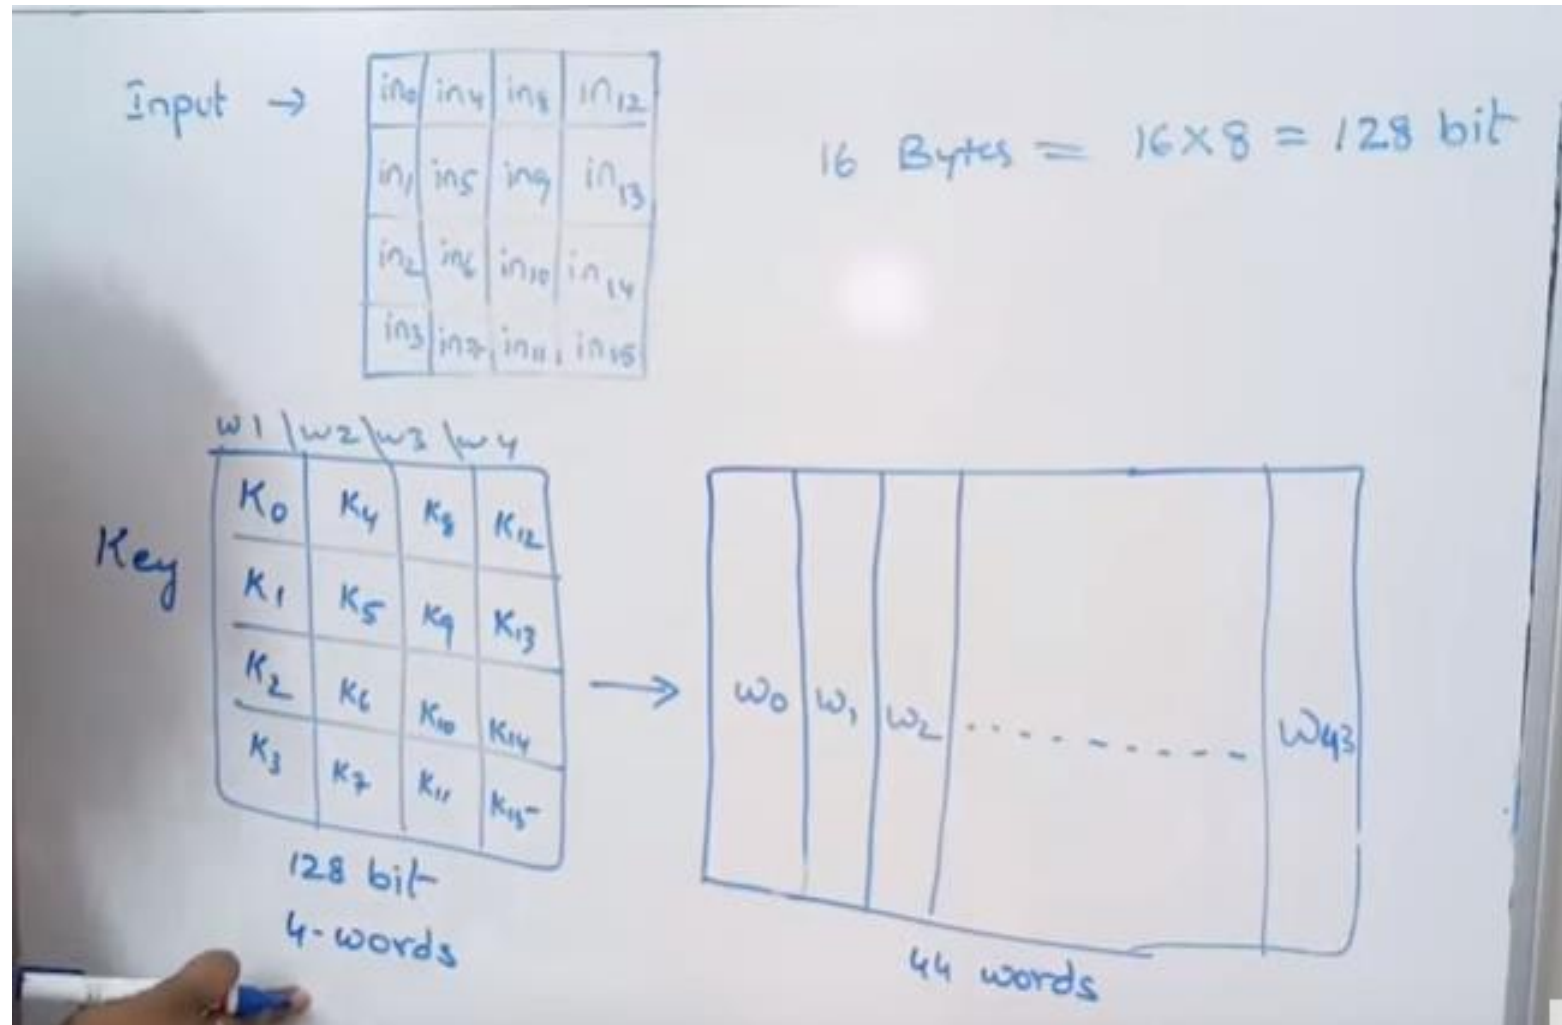 Input →
in0 in4 in8 in12
in1 in5 in9 in13
in2 in6 in10 in14
in3 in7 in11 in15
16 Bytes = 16×8 = 128 bit
w1 \ w2 \ w3 \ w4
Key
K0 K4 K8 K12
K1 K5 K9 K13
K2 K6 K10 K14
K3 K7 K11 K15
128 bit
4-words
→
w0 w1 w2 ........... w43
44 words